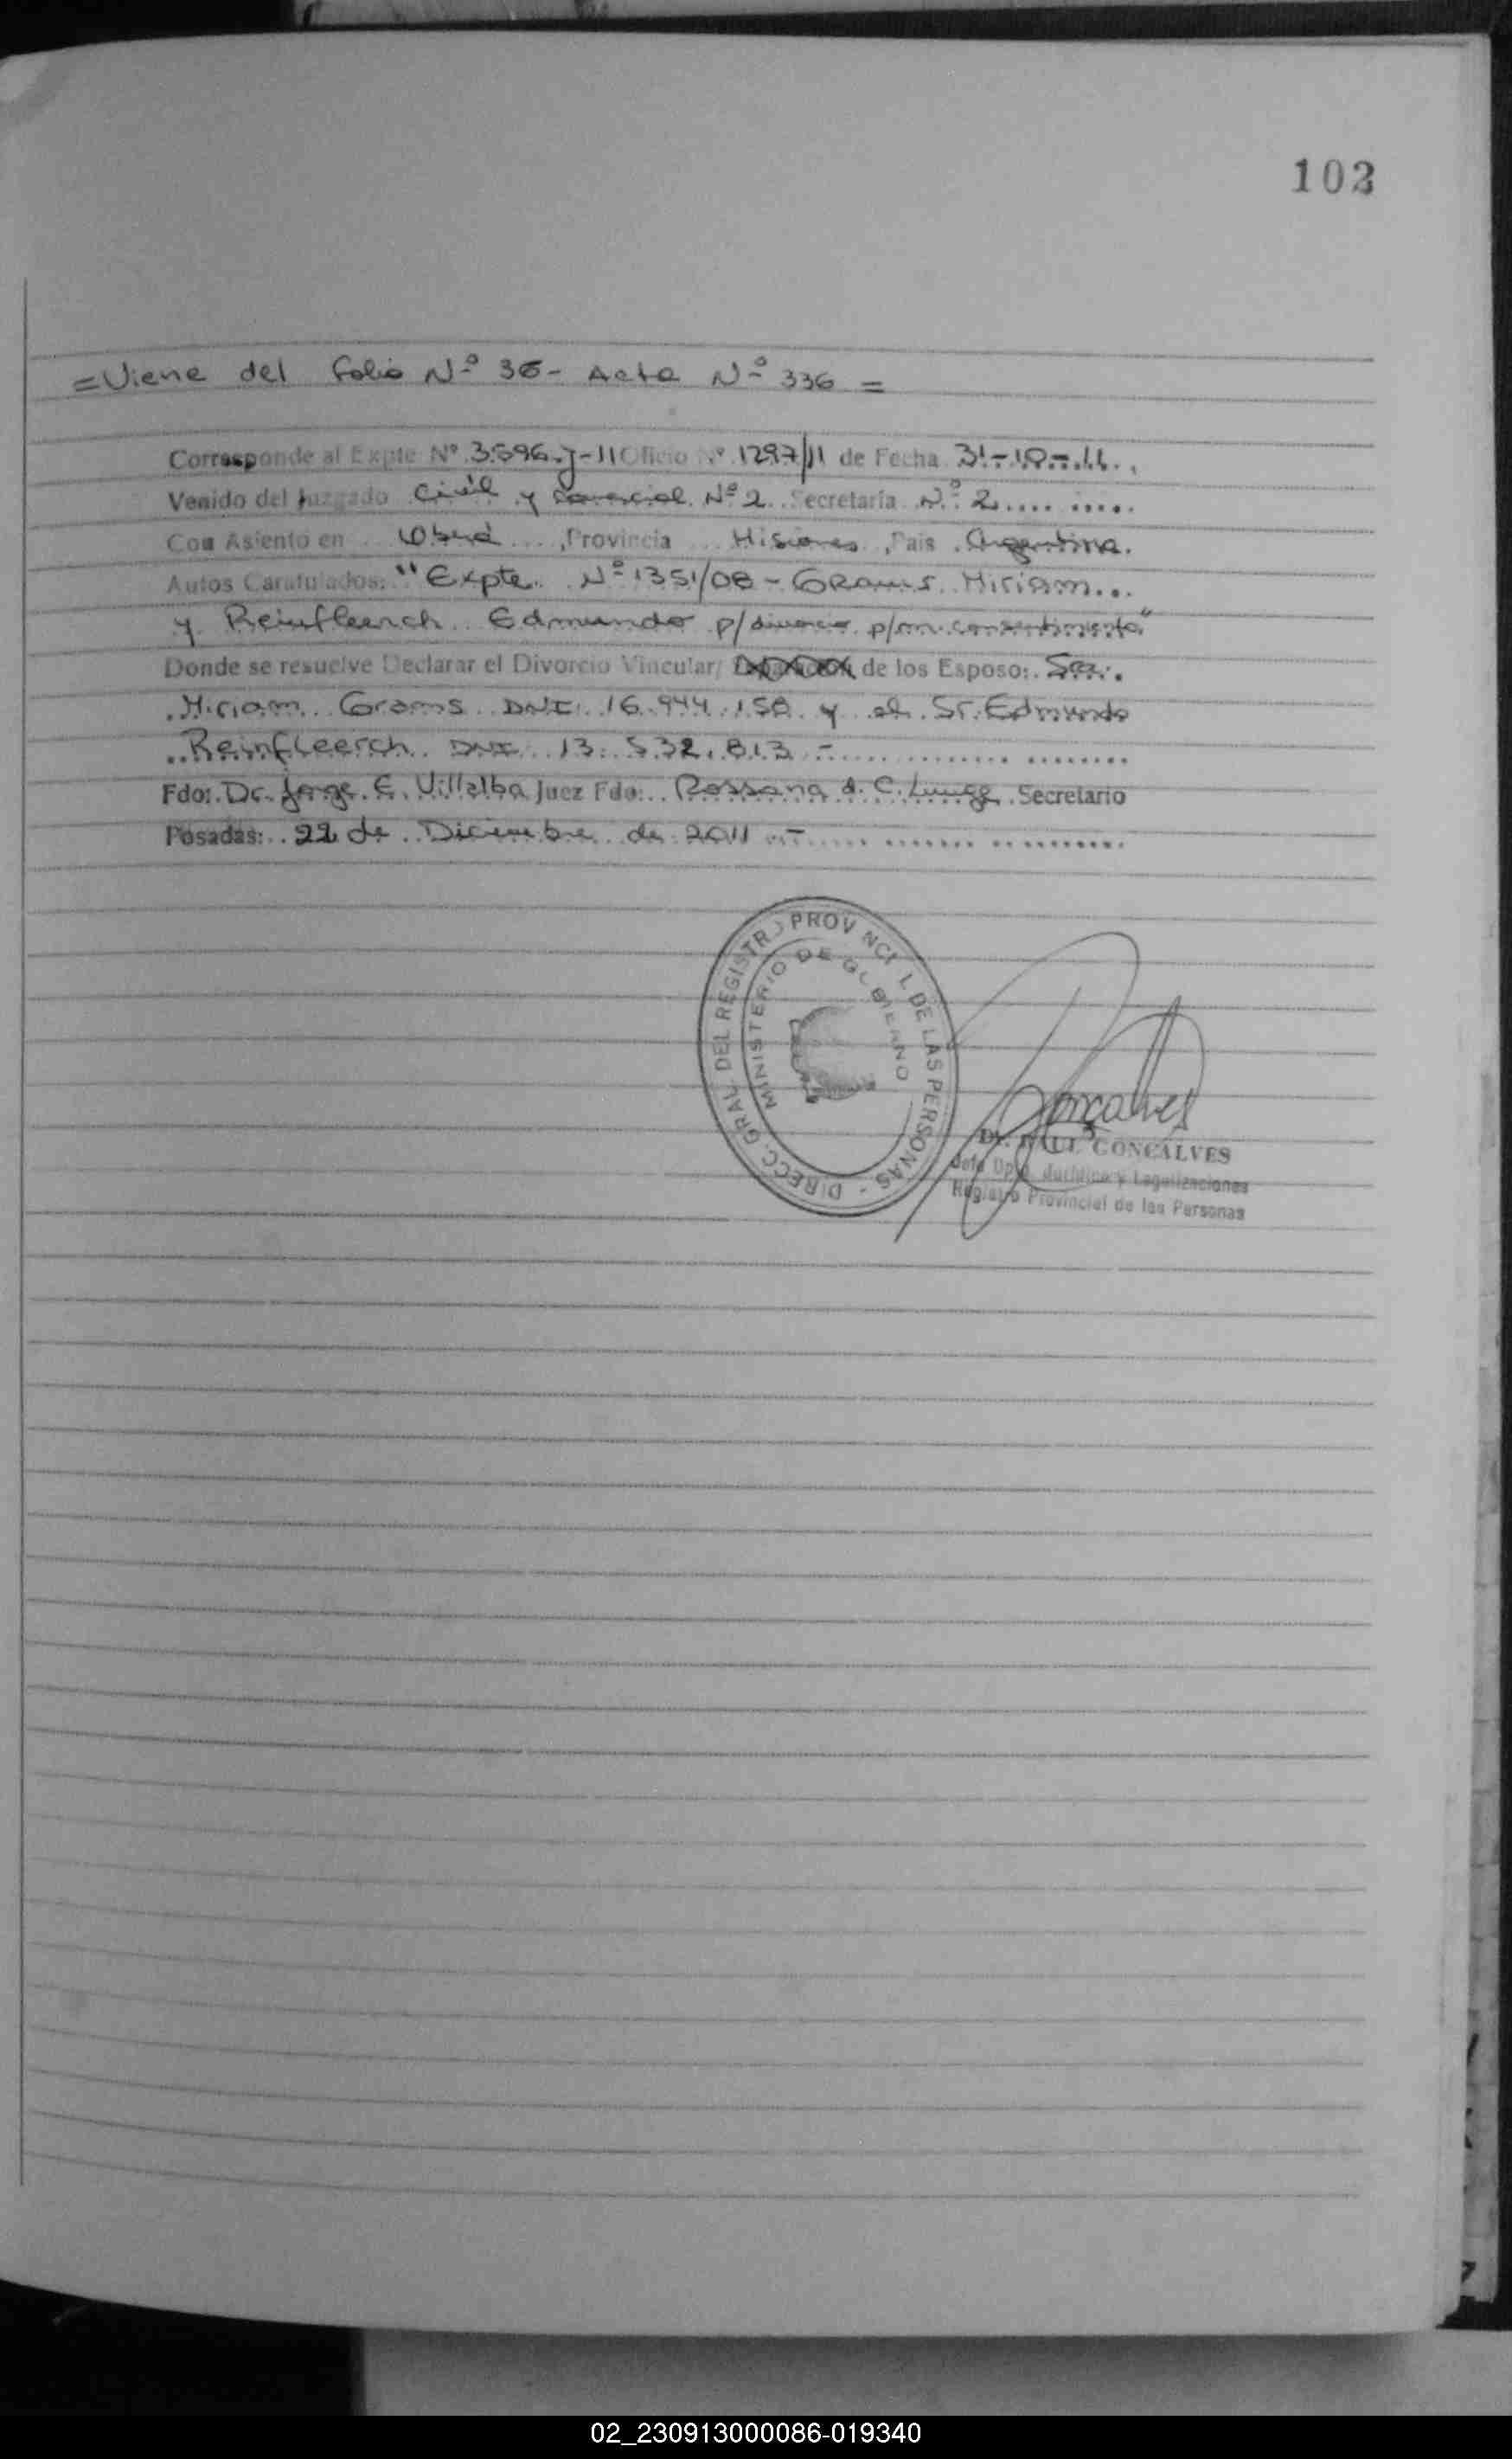 103
= Viene del folio Nº 36 - Acta Nº 336 =
Corresponde al Expte Nº 3.596-J-11 Oficio Nº 1297/11 de Fecha 31-10-11.
Venido del Juzgado Civil y Comercial Nº 2 Secretaría Nº 2
Con Asiento en Oberá, Provincia Misiones, País Argentina.
Autos Caratulados: "Expte. Nº 1351/08 - Grams Miriam
y Reinfleerch Edmundo p/divorcio p/m. consentimiento"
Donde se resuelve Declarar el Divorcio Vincular/ de los Esposo: Sra.
Miriam Grams DNI 16.944.158 y el Sr. Edmundo
Reinfleerch DNI 13.532.813 -
Fdo: Dr. Jorge E. Villalba Juez Fdo: Rossana A. C. Secretario
Posadas: 22 de Diciembre de 2011 -
DIRECC. GRAL. DEL REGISTRO PROVINCIAL DE LAS PERSONAS -
MINISTERIO DE GOBIERNO
Goncalves
Dr. RAUL GONCALVES
Jefe Dpto. Jurídico y Legalizaciones
Registro Provincial de las Personas
02_230913000086-019340